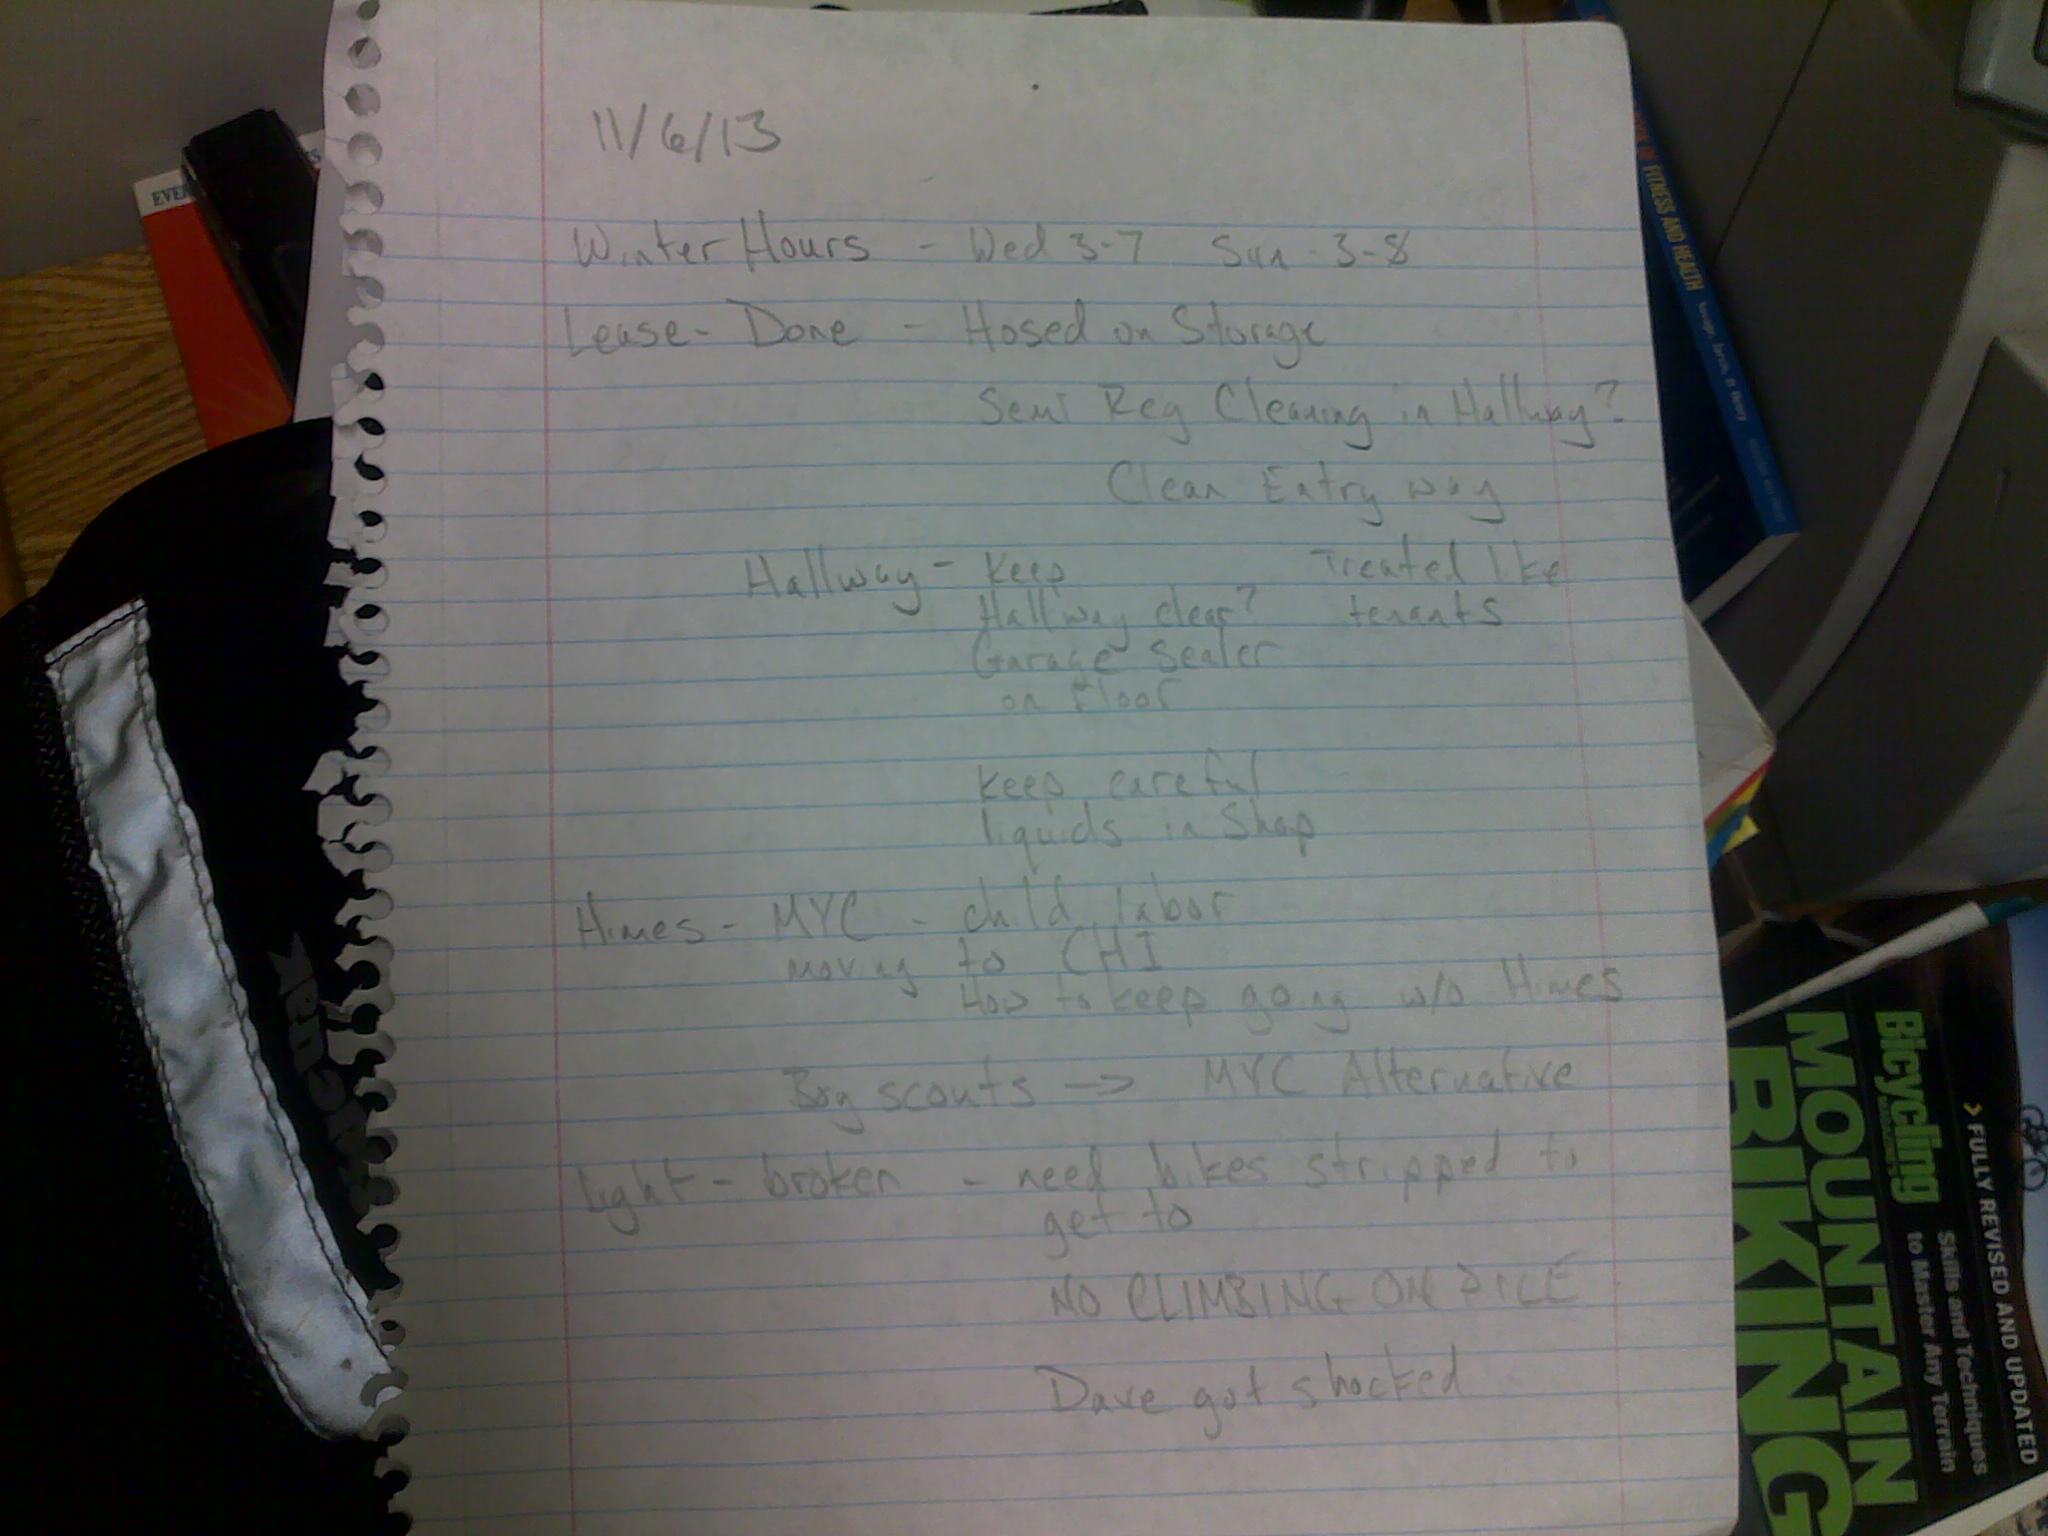 11/6/13
Winter Hours - Wed 3-7 Sun - 3-8
Lease - Done - Hosed on Storage
Semi Reg Cleaning in Hallway?
Clean Entry way
Hallway - Keep Treated like
Hallway clear? tenants
Garage Sealer
on Floor
Keep careful
liquids in Shop
Himes - MYC - child labor
moving to CHI
How to keep going w/o Himes
Boy scouts -> MYC Alternative
Light - broken - need bikes stripped to
get to
NO CLIMBING ON PILE
Dave got shocked
EVER
OF FITNESS AND HEALTH
Bicycling
MOUNTAIN
BIKING
Skills and Techniques
to Master Any Terrain
> FULLY REVISED AND UPDATED